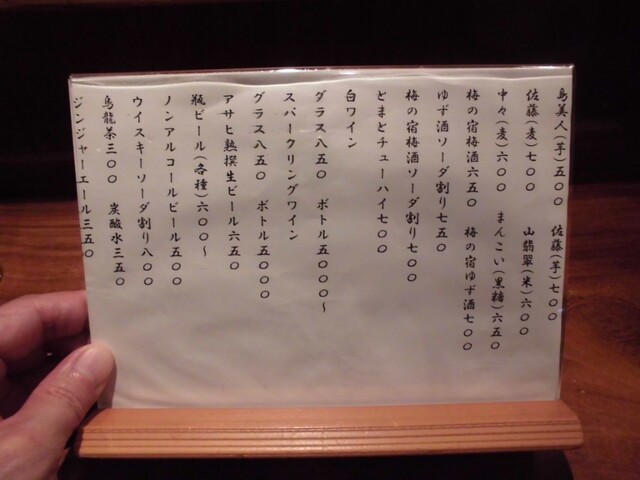 島美人（芋）五〇〇　佐藤（芋）七〇〇
佐藤（麦）七〇〇　山翡翠（米）六〇〇
中々（麦）六〇〇　まんこい（黒糖）六五〇
梅の宿梅酒六五〇　梅の宿ゆず酒七〇〇
ゆず酒ソーダ割り七五〇
梅の宿梅酒ソーダ割り七〇〇
とまとチューハイ七〇〇
白ワイン
グラス八五〇　ボトル五〇〇〇〜
スパークリングワイン
グラス八五〇　ボトル五〇〇〇
アサヒ熟撰生ビール六五〇
瓶ビール（各種）六〇〇〜
ノンアルコールビール五〇〇
ウイスキーソーダ割り八〇〇
烏龍茶三〇〇　炭酸水三五〇
ジンジャーエール三五〇